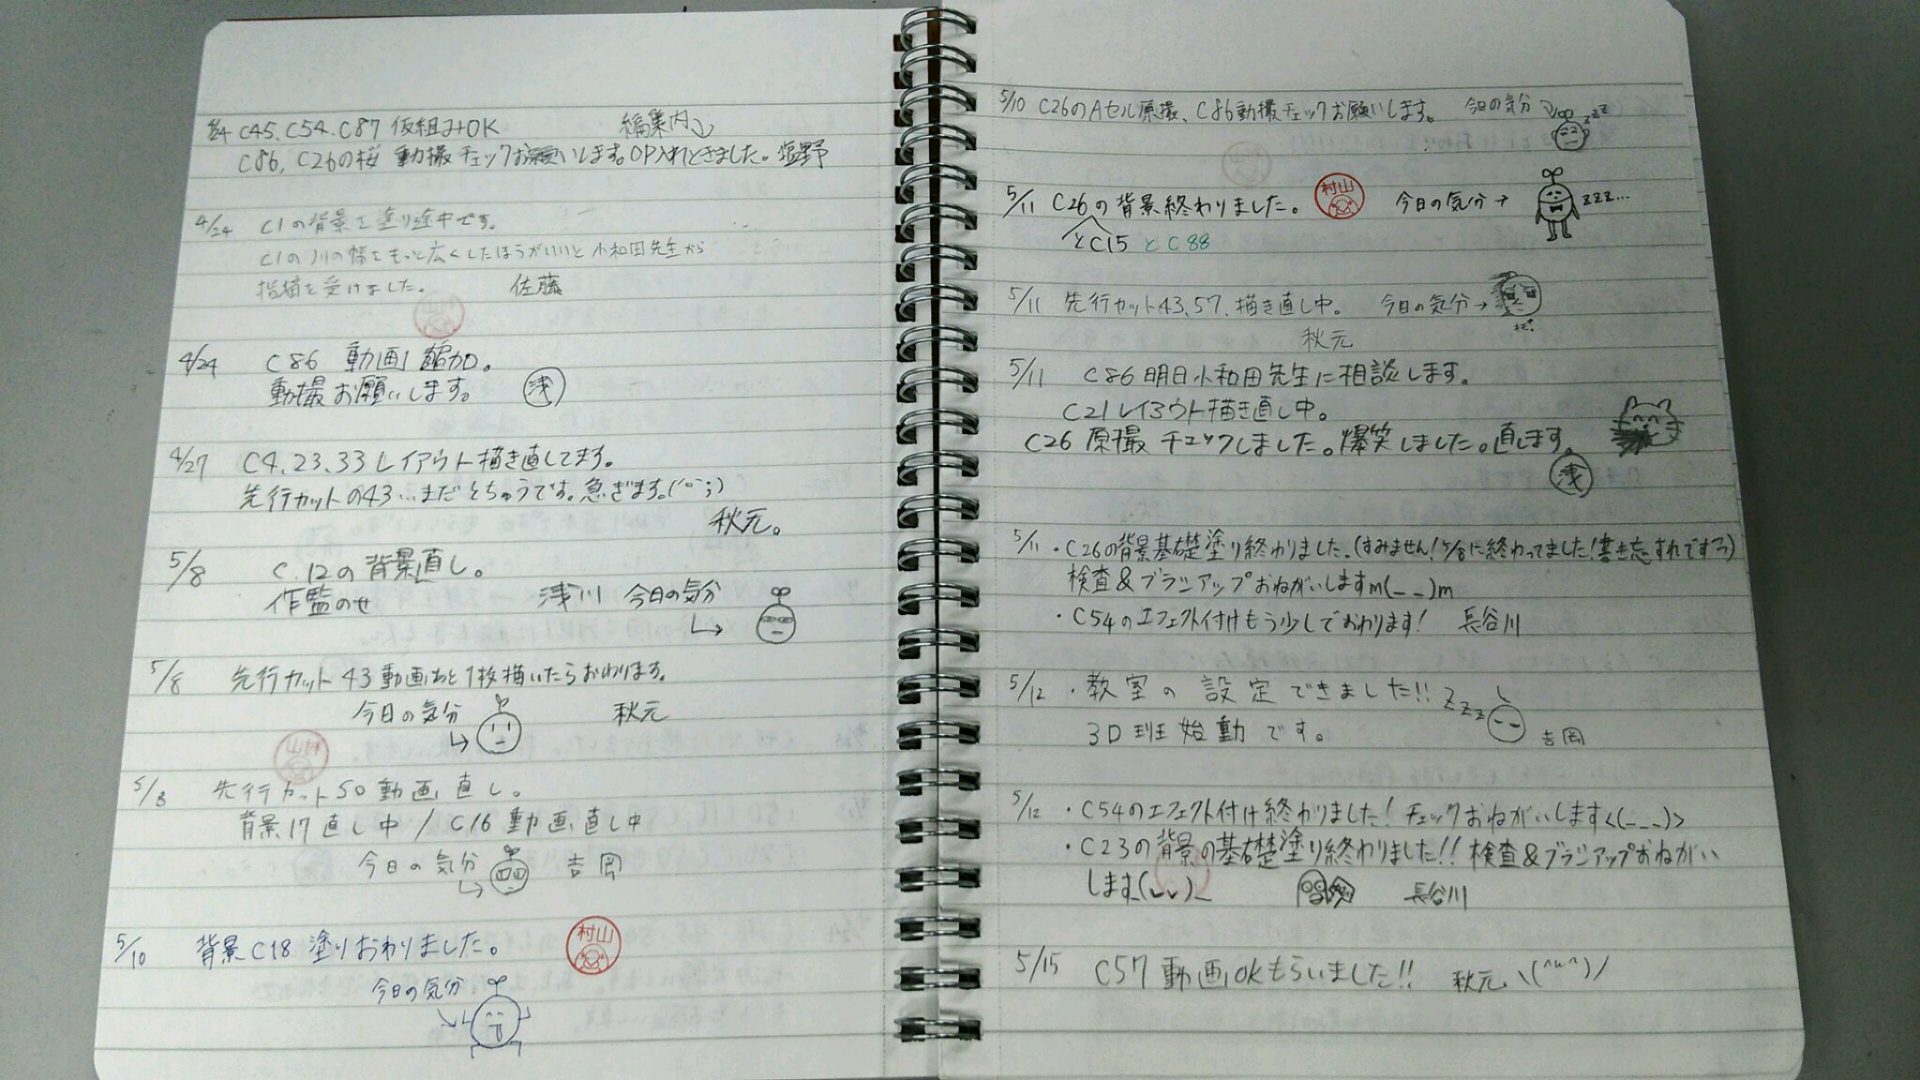 4/24 C45、C54、C87 仮組みOK 編集内
C86、C26の桜 動撮チェックお願いします。OP入れときました。塩野
4/24 C1の背景を塗り途中です。
C1の川の幅をもっと広くしたほうがいいと小和田先生から
指摘を受けました。 佐藤
4/24 C86 動画 追加。
動撮お願いします。 浅
4/27 C4、23、33レイアウト描き直してます。
先行カットの43…まだとちゅうです。急ぎます。(´ο`;)
秋元。
5/8 C.12の背景直し。
作監のせ 浅川 今日の気分
5/8 先行カット43動画あと1枚描いたらおわります。
今日の気分 秋元
村山
5/8 先行カット50動画直し。
背景17直し中/C16動画直し中
今日の気分 吉岡
5/10 背景C18塗りおわりました。 村山
今日の気分
5/10 C26のAセル原撮、C86動撮チェックお願いします。 今日の気分 zzz
5/11 C26の背景終わりました。 村山 今日の気分→ zzz...
とC15とC88
5/11 先行カット43、57、描き直し中。 今日の気分→
秋元
5/11 C86明日小和田先生に相談します。
C21レイアウト描き直し中。
C26 原撮チェックしました。爆笑しました。直します。
浅
5/11・C26の背景基礎塗り終わりました。(すみません!5/8に終わってました!書き忘れです)
検査&ブラシアップおねがいしますm(_ _)m
・C54のエフェクト付けもう少しでおわります! 長谷川
5/12・教室の設定できました!! zzz
3D班始動です。 吉岡
5/12・C54のエフェクト付け終わりました!チェックおねがいします<(_ _)>
・C23の背景の基礎塗り終わりました!!検査&ブラシアップおねがい
します_(ᴗᴗ)_ 長谷川
5/15 C57動画OKもらいました!! 秋元、\(^u^)/